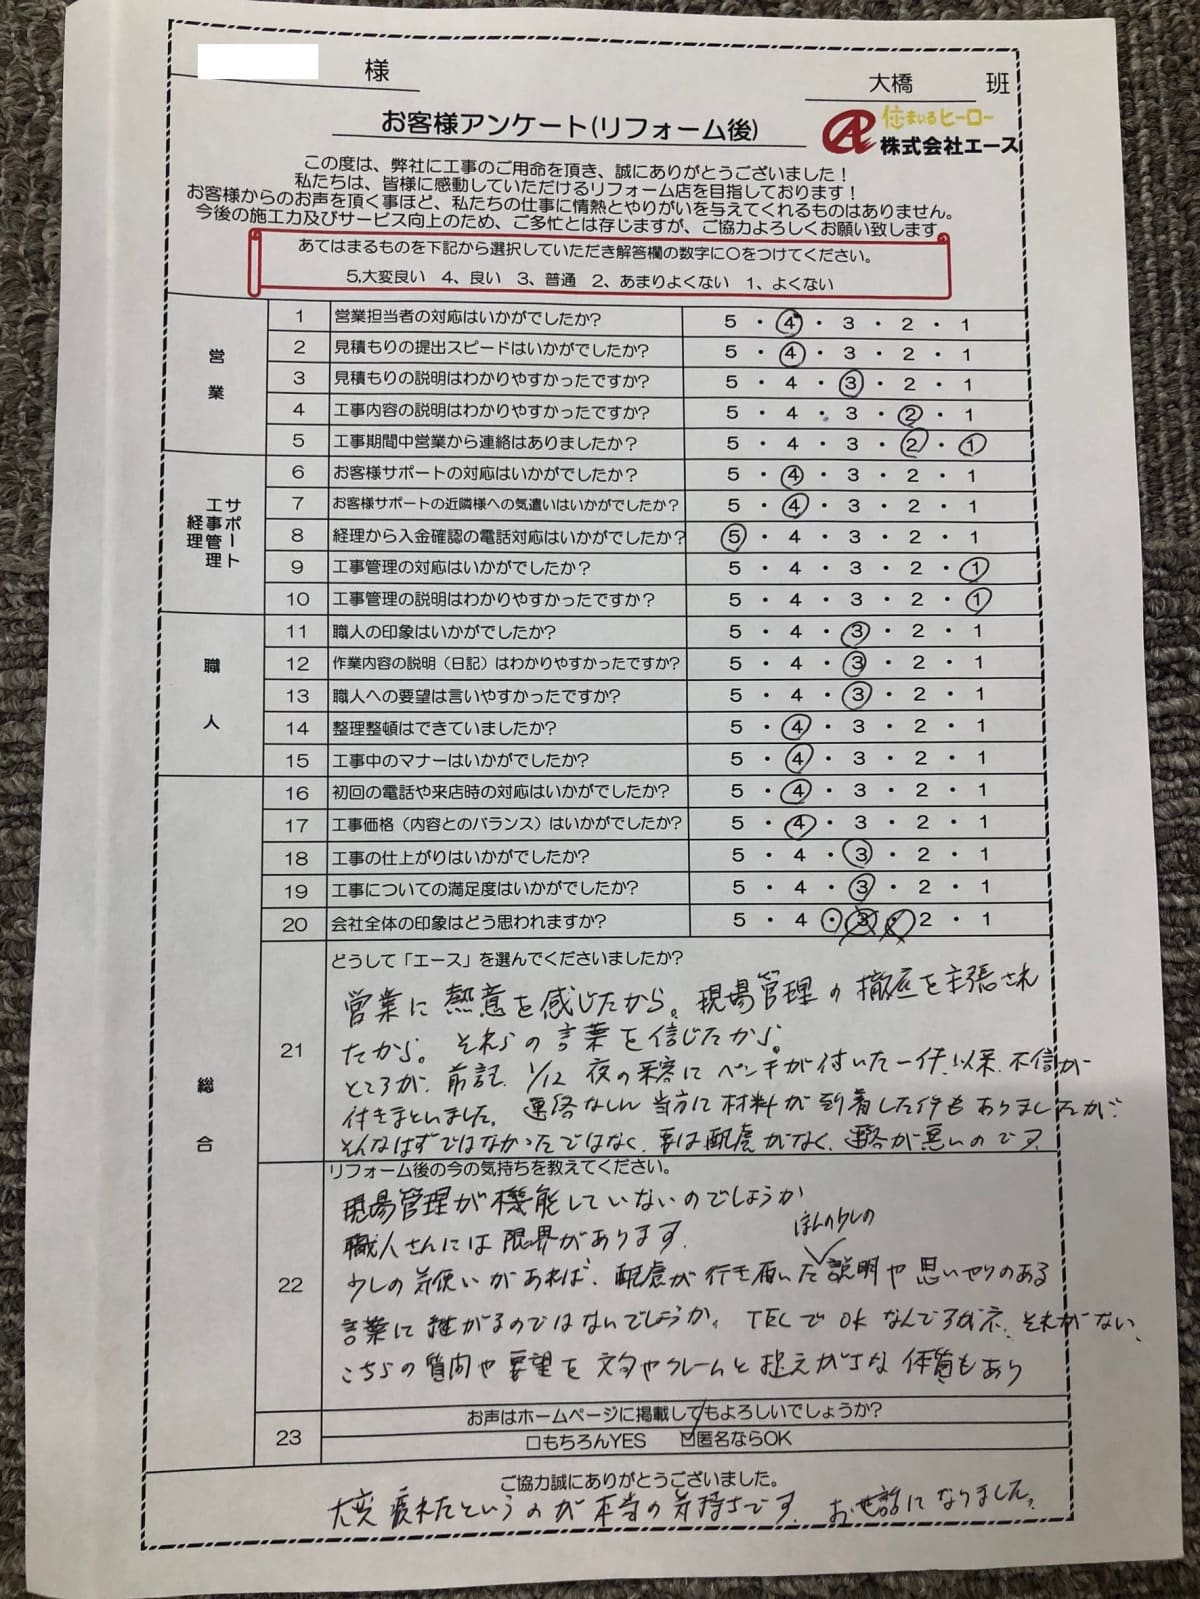 様
大橋 班
お客様アンケート(リフォーム後)
住まいるヒーロー
株式会社エース
この度は、弊社に工事のご用命を頂き、誠にありがとうございました!
私たちは、皆様に感動していただけるリフォーム店を目指しております!
お客様からのお声を頂く事ほど、私たちの仕事に情熱とやりがいを与えてくれるものはありません。
今後の施工力及びサービス向上のため、ご多忙とは存じますが、ご協力よろしくお願い致します
あてはまるものを下記から選択していただき解答欄の数字に〇をつけてください。
5,大変良い 4、良い 3、普通 2、あまりよくない 1、よくない
営業
1 営業担当者の対応はいかがでしたか? 5・4・3・2・1
2 見積もりの提出スピードはいかがでしたか? 5・4・3・2・1
3 見積もりの説明はわかりやすかったですか? 5・4・3・2・1
4 工事内容の説明はわかりやすかったですか? 5・4・3・2・1
5 工事期間中営業から連絡はありましたか? 5・4・3・2・1
サポート
工事管理
経理
6 お客様サポートの対応はいかがでしたか? 5・4・3・2・1
7 お客様サポートの近隣様への気遣いはいかがでしたか? 5・4・3・2・1
8 経理から入金確認の電話対応はいかがでしたか? 5・4・3・2・1
9 工事管理の対応はいかがでしたか? 5・4・3・2・1
10 工事管理の説明はわかりやすかったですか? 5・4・3・2・1
職人
11 職人の印象はいかがでしたか? 5・4・3・2・1
12 作業内容の説明(日記)はわかりやすかったですか? 5・4・3・2・1
13 職人への要望は言いやすかったですか? 5・4・3・2・1
14 整理整頓はできていましたか? 5・4・3・2・1
15 工事中のマナーはいかがでしたか? 5・4・3・2・1
総合
16 初回の電話や来店時の対応はいかがでしたか? 5・4・3・2・1
17 工事価格(内容とのバランス)はいかがでしたか? 5・4・3・2・1
18 工事の仕上がりはいかがでしたか? 5・4・3・2・1
19 工事についての満足度はいかがでしたか? 5・4・3・2・1
20 会社全体の印象はどう思われますか? 5・4・3・2・1
21 どうして「エース」を選んでくださいましたか?
営業に熱意を感じたから。現場管理の徹底を主張され
たから。それらの言葉を信じたから。
ところが、前記、1/12 夜の来客にペンキが付いた一件以来、不信が
付きまといました。連絡なしに当方に材料が到着した件もありましたが、
そんなはずではなかったではなく、要は配慮がなく、連絡が悪いのです
22 リフォーム後の今の気持ちを教えてください。
現場管理が機能していないのでしょうか
職人さんには限界があります。
ほんの少しの
少しの気使いがあれば、配慮が行き届いた説明や思いやりのある
言葉に繋がるのではないでしょうか。TELでOKなんですがネ、それがない、
こちらの質問や要望を文句やクレームと捉えがちな体質もあり
23 お声はホームページに掲載してもよろしいでしょうか?
□もちろんYES ☑匿名ならOK
ご協力誠にありがとうございました。
大変疲れたというのが本当の気持ちです。お世話になりました。